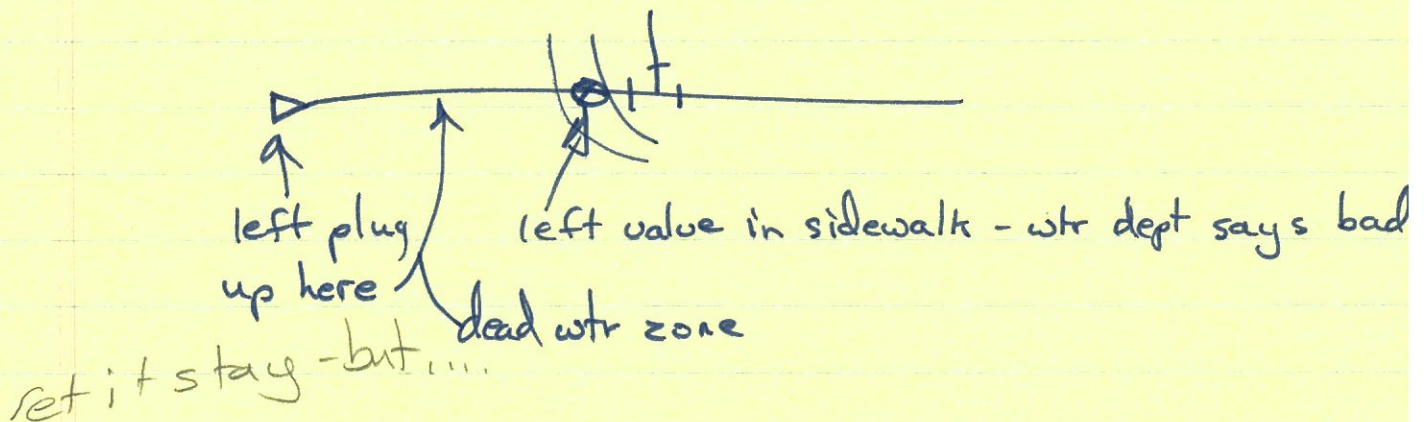 left plug
up here
left value in sidewalk - wtr dept says bad
dead wtr zone
let it stay - but....